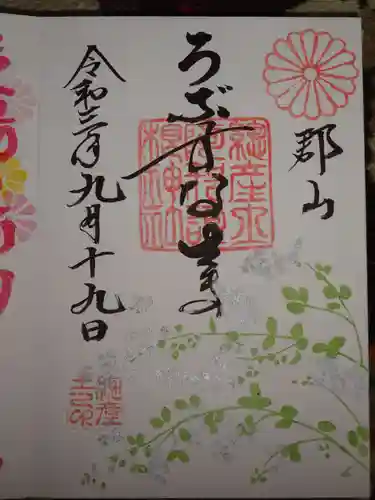 郡山
うぶすなさま
總産土
阿邪訶
根神社
令和三年九月十九日